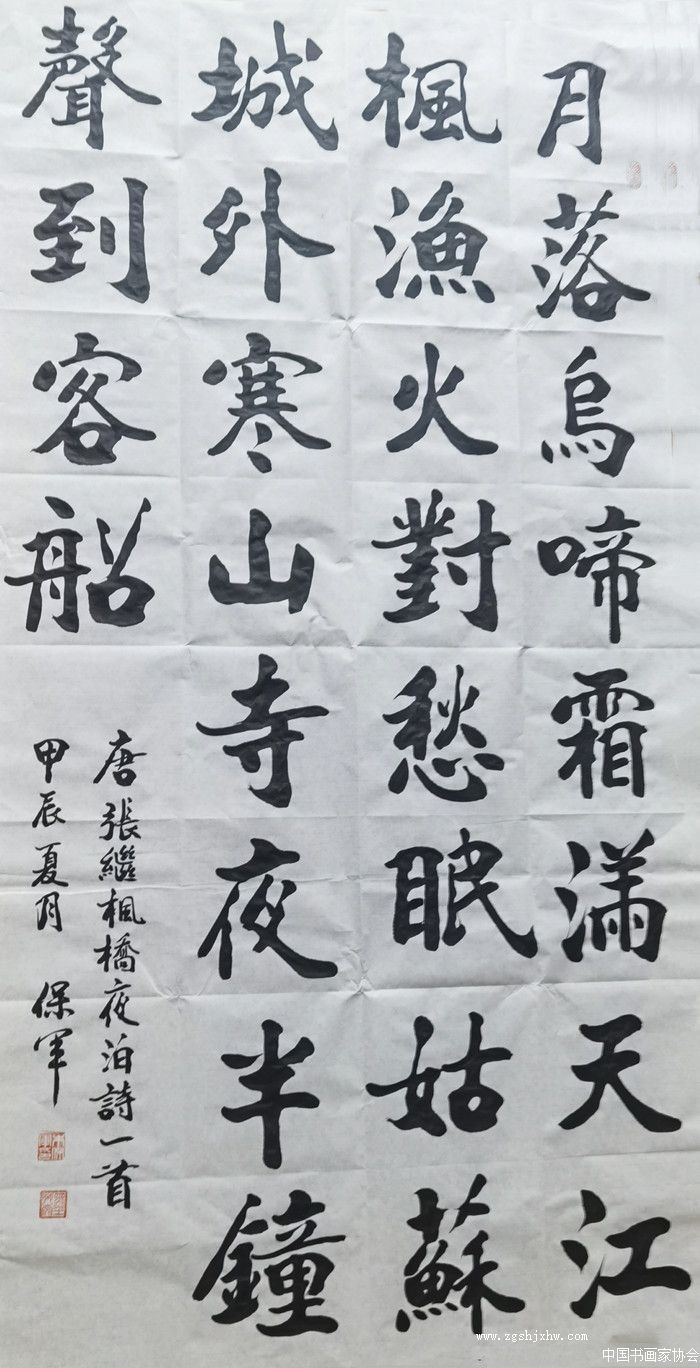 月落烏啼霜滿天江
楓漁火對愁眠姑蘇
城外寒山寺夜半鐘
聲到客船
唐張繼楓橋夜泊詩一首
甲辰夏月 保軍
www.zgshjxhw.com
中国书画家协会